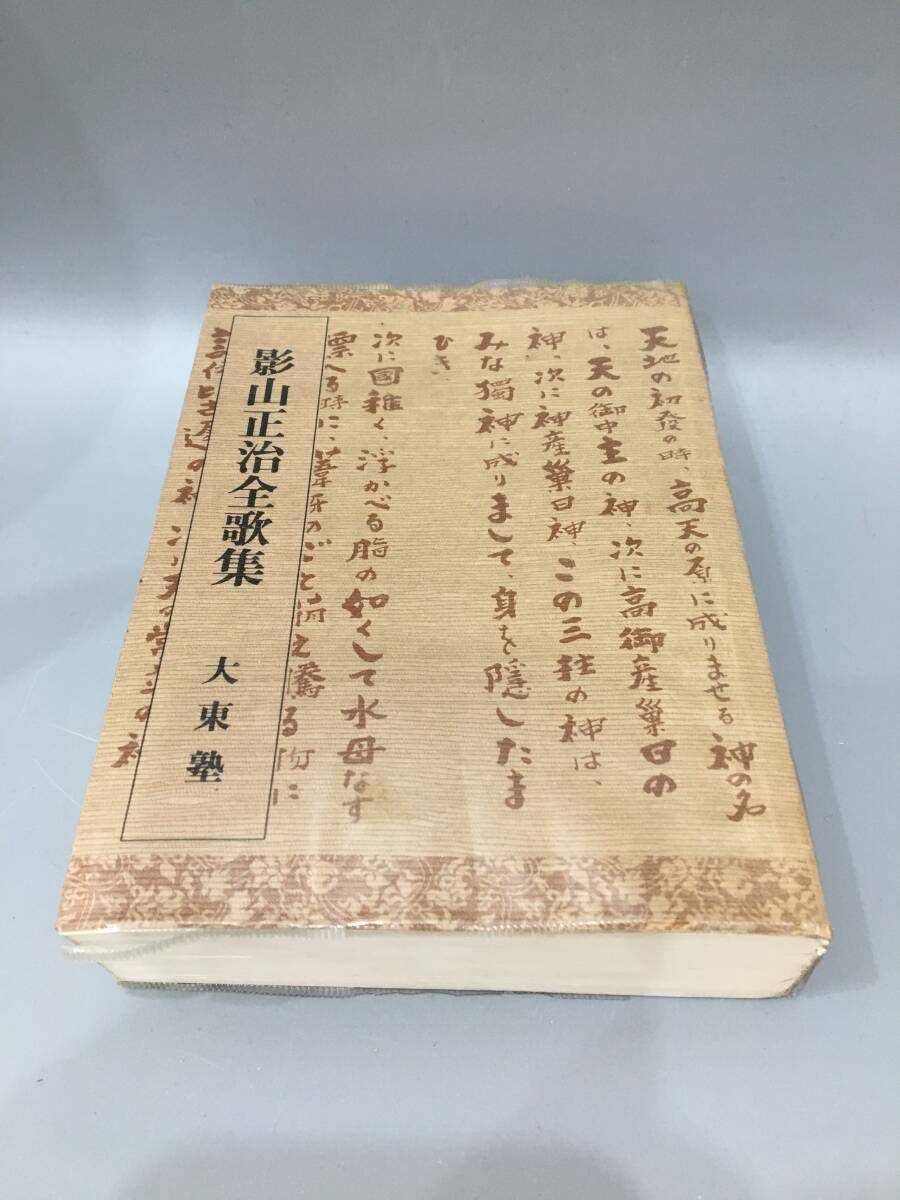 天地の初發の時、高天の原に成りませる神の名
は、天の御中主の神、次に高御産巣日の
神、次に神産巣日神、この三柱の神は、
みな獨神に成りまして、身を隱したま
ひき、
次に國稚く、浮かべる脂の如くして水母なす
影山正治全歌集
大東塾